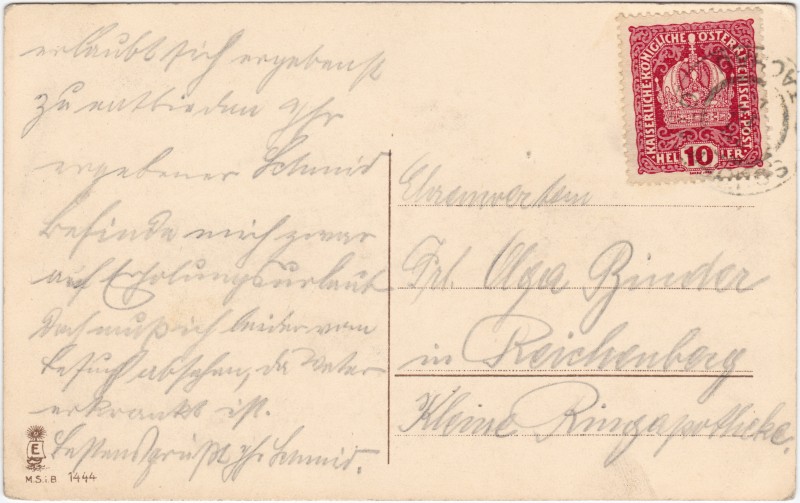 erlaubt sich ergebenst
zu entbieden Ihr
ergebener Schmid
Befinde mich zwar
auf Erholungsurlaub
Doch muß ich leider vom
Besuch absehen, da Vater
erkrankt ist.
Bestens grüßt Ihr Schmid.
E
M.S.i.B. 1444
KAISERLICHE KÖNIGLICHE ÖSTERREICHISCHE POST
HELLER
10
Ehrenwerten
Frl. Olga Binder
in Reichenberg
Kleine Ringapotheke.